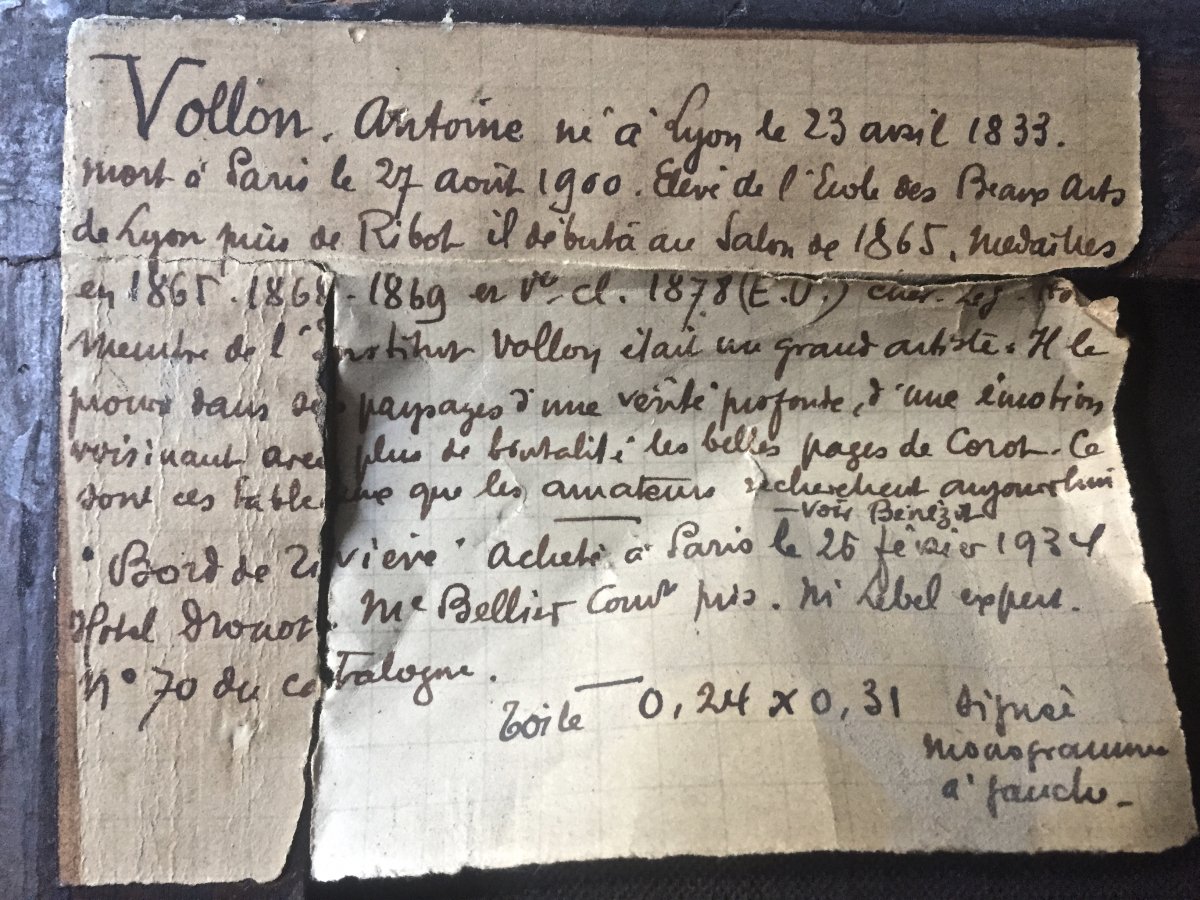 Vollon. Antoine né à Lyon le 23 avril 1833.
mort à Paris le 27 août 1900. Elève de l'Ecole des Beaux Arts
de Lyon puis de Ribot il débuta au Salon de 1865. Medailles
en 1865. 1868. 1869 et 1878 (E.U.) cher. Leg.
Membre de l'Institut Vollon était un grand artiste. Il le
prouve dans ses paysages d'une vérité profonde, d'une émotion
voisinant avec plus de brutalité les belles pages de Corot. Ce
sont ces tableaux que les amateurs recherchent aujourd'hui
— voir Bénézit
"Bord de rivière" acheté à Paris le 26 février 1934
Hotel Drouot. Me Bellier Comre pris. Mr Lebel expert.
N° 70 du catalogue.
Toile — 0,24 x 0,31 signée
monogramme
à gauche.